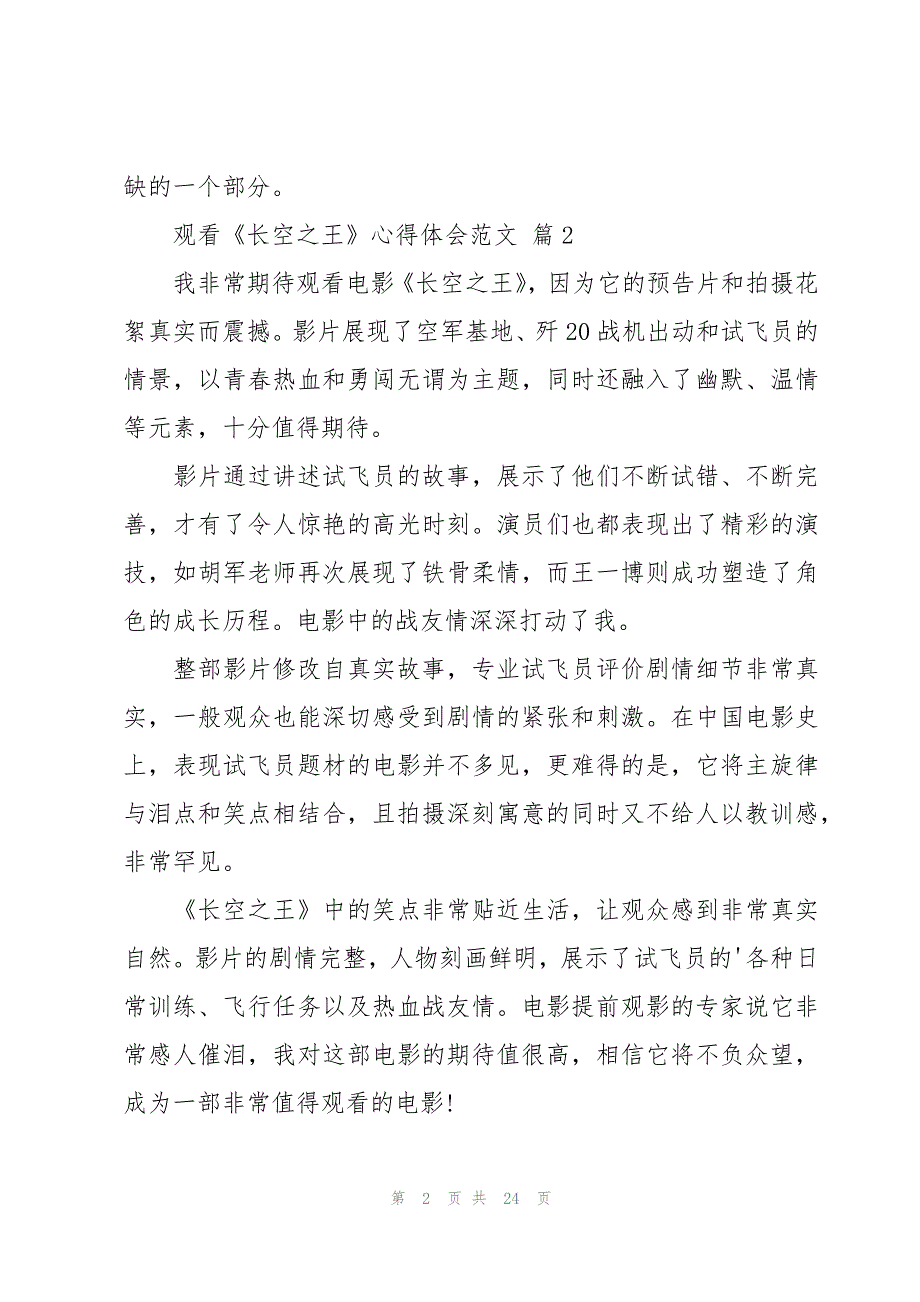 缺的一个部分。
观看《长空之王》心得体会范文 篇2
我非常期待观看电影《长空之王》，因为它的预告片和拍摄花
絮真实而震撼。影片展现了空军基地、歼20战机出动和试飞员的
情景，以青春热血和勇闯无谓为主题，同时还融入了幽默、温情
等元素，十分值得期待。
影片通过讲述试飞员的故事，展示了他们不断试错、不断完
善，才有了令人惊艳的高光时刻。演员们也都表现出了精彩的演
技，如胡军老师再次展现了铁骨柔情，而王一博则成功塑造了角
色的成长历程。电影中的战友情深深打动了我。
整部影片修改自真实故事，专业试飞员评价剧情细节非常真
实，一般观众也能深切感受到剧情的紧张和刺激。在中国电影史
上，表现试飞员题材的电影并不多见，更难得的是，它将主旋律
与泪点和笑点相结合，且拍摄深刻寓意的同时又不给人以教训感，
非常罕见。
《长空之王》中的笑点非常贴近生活，让观众感到非常真实
自然。影片的剧情完整，人物刻画鲜明，展示了试飞员的'各种日
常训练、飞行任务以及热血战友情。电影提前观影的专家说它非
常感人催泪，我对这部电影的期待值很高，相信它将不负众望，
成为一部非常值得观看的电影!
第 2 页 共 24 页